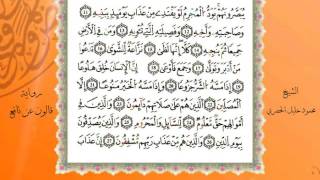 يُبَصَّرُونَهُمْ يَوَدُّ الْمُجْرِمُ لَوْ يَفْتَدِي مِنْ عَذَابِ يَوْمَئِذٍ بِبَنِيهِ ⑪
وَصَاحِبَتِهِ وَأَخِيهِ ⑫ وَفَصِيلَتِهِ الَّتِي تُؤْوِيهِ ⑬ وَمَن فِي الْأَرْضِ
جَمِيعًا ثُمَّ يُنجِيهِ ⑭ كَلَّا إِنَّهَا لَظَىٰ ⑮ نَزَّاعَةٌ لِّلشَّوَىٰ ⑯ تَدْعُوا
مَنْ أَدْبَرَ وَتَوَلَّىٰ ⑰ وَجَمَعَ فَأَوْعَىٰ ⑱ إِنَّ الْإِنسَانَ خُلِقَ هَلُوعًا
⑲ إِذَا مَسَّهُ الشَّرُّ جَزُوعًا ⑳ وَإِذَا مَسَّهُ الْخَيْرُ مَنُوعًا ㉑ إِلَّا
الْمُصَلِّينَ ㉒ الَّذِينَ هُمْ عَلَىٰ صَلَاتِهِمْ دَائِمُونَ ㉓ وَالَّذِينَ فِي
أَمْوَالِهِمْ حَقٌّ مَّعْلُومٌ ㉔ لِّلسَّائِلِ وَالْمَحْرُومِ ㉕ وَالَّذِينَ يُصَدِّقُونَ
بِيَوْمِ الدِّينِ ㉖ وَالَّذِينَ هُم مِّنْ عَذَابِ رَبِّهِم مُّشْفِقُونَ ㉗ إِنَّ عَذَابَ
الشيخ
محمود خليل الحصري
رواية
قالون عن نافع